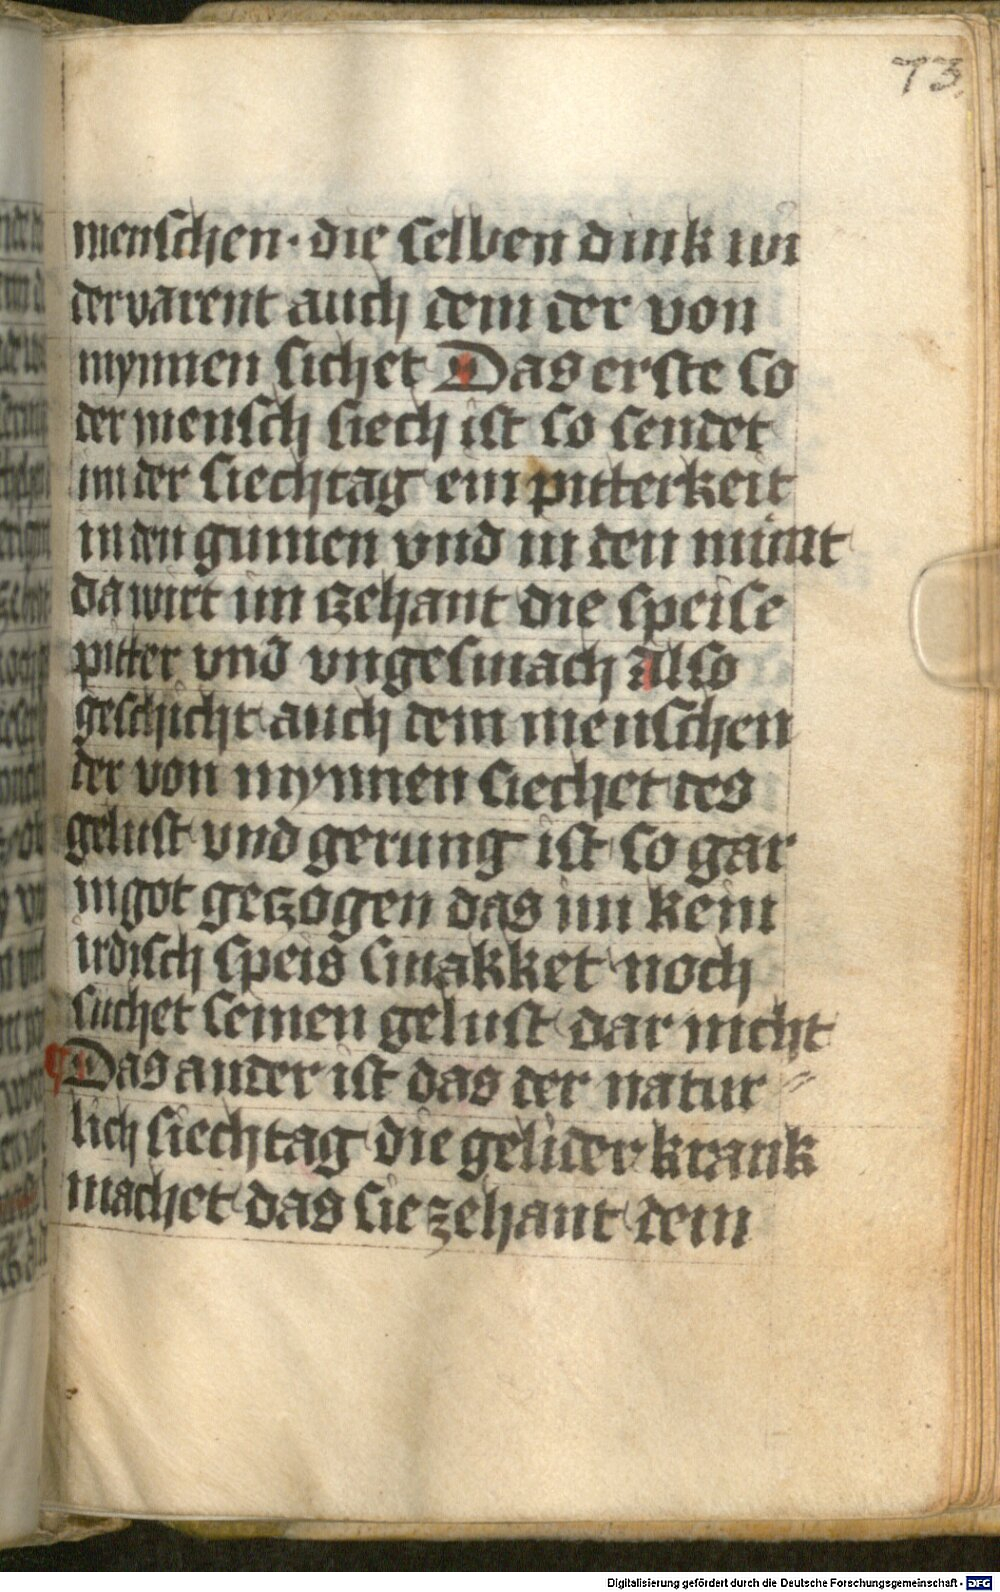 73.
menschen · die selben dink wi
dervarent auch dem der von
mynnen sichet Das erste so
der mensch siech ist so sendet
im der siechtag ein pitterkeit
in den gumen vnd in den munt
da wirt im czehant die speise
pitter vnd vngesmach also
geschicht auch dem menschen
der von mynnen siechet des
gelust vnd gerung ist so gar
in got geczogen das im kein
irdisch speis smakket noch
suchet seinen gelust dar nicht
¶ Das ander ist das der natur⸗
lich siechtag die gelider krank
machet das sie zehant dem
Digitalisierung gefördert durch die Deutsche Forschungsgemeinschaft - DFG